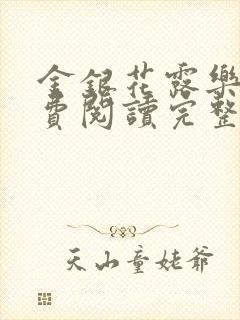 金銀花露樂
費閱讀完整
天山童姥爺